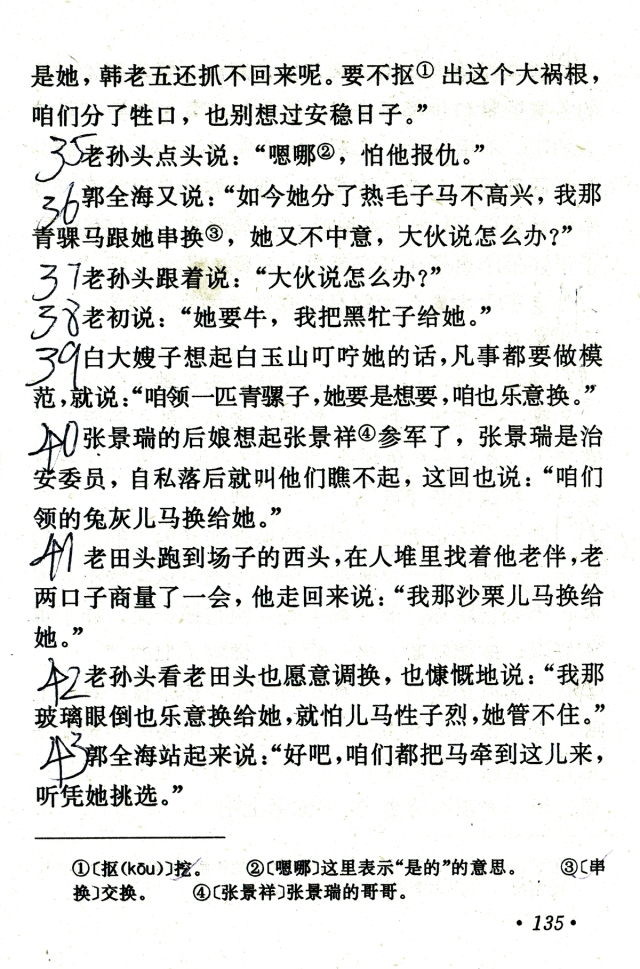 是她，韩老五还抓不回来呢。要不抠① 出这个大祸根，
咱们分了牲口，也别想过安稳日子。”
35老孙头点头说：“嗯哪②，怕他报仇。”
36郭全海又说：“如今她分了热毛子马不高兴，我那
青骒马跟她串换③，她又不中意，大伙说怎么办？”
37老孙头跟着说：“大伙说怎么办？”
38老初说：“她要牛，我把黑牤子给她。”
39白大嫂子想起白玉山叮咛她的话，凡事都要做模
范，就说：“咱领一匹青骡子，她要是想要，咱也乐意换。”
40张景瑞的后娘想起张景祥④参军了，张景瑞是治
安委员，自私落后就叫他们瞧不起，这回也说：“咱们
领的兔灰儿马换给她。”
41 老田头跑到场子的西头，在人堆里找着他老伴，老
两口子商量了一会，他走回来说：“我那沙栗儿马换给
她。”
42老孙头看老田头也愿意调换，也慷慨地说：“我那
玻璃眼倒也乐意换给她，就怕儿马性子烈，她管不住。”
43郭全海站起来说：“好吧，咱们都把马牵到这儿来，
听凭她挑选。”
①〔抠(kōu)〕挖。 ②〔嗯哪〕这里表示“是的”的意思。 ③〔串
换〕交换。 ④〔张景祥〕张景瑞的哥哥。
·135·